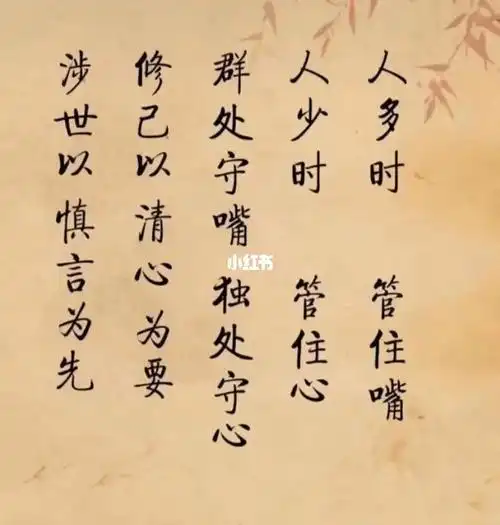 人多时 管住嘴
人少时 管住心
群处守嘴 独处守心
修己以清心为要
涉世以慎言为先
小红书